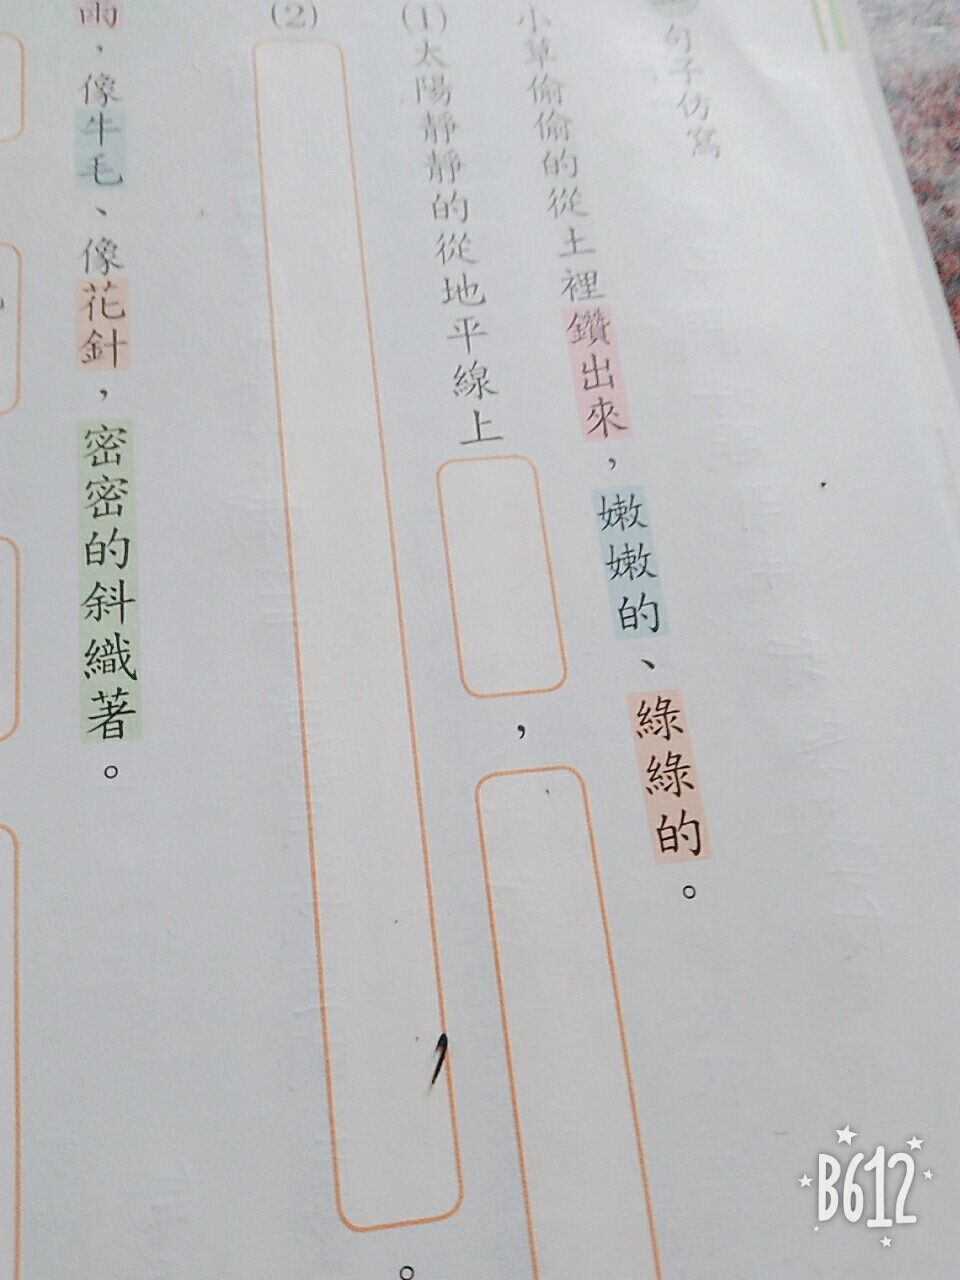 句子仿寫
小草偷偷的從土裡鑽出來，嫩嫩的、綠綠的。
(1)太陽靜靜的從地平線上，
(2)。
雨，像牛毛、像花針，密密的斜織著。
B612